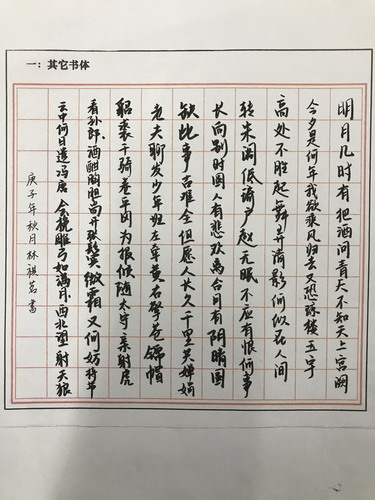 一：其它书体
明月几时有把酒问青天不知天上宫阙
今夕是何年我欲乘风归去又恐琼楼玉宇
高处不胜起舞弄清影何似在人间
转朱阁低绮户照无眠不应有恨何事
长向别时圆人有悲欢离合月有阴晴圆
缺此事古难全但愿人长久千里共婵娟
老夫聊发少年狂左牵黄右擎苍锦帽
貂裘千骑卷平冈为报倾随太守亲射虎
看孙郎酒酣胸胆尚开张鬓微霜又何妨持节
云中何日遣冯唐会挽雕弓如满月西北望射天狼
庚子年秋月林祺茗书